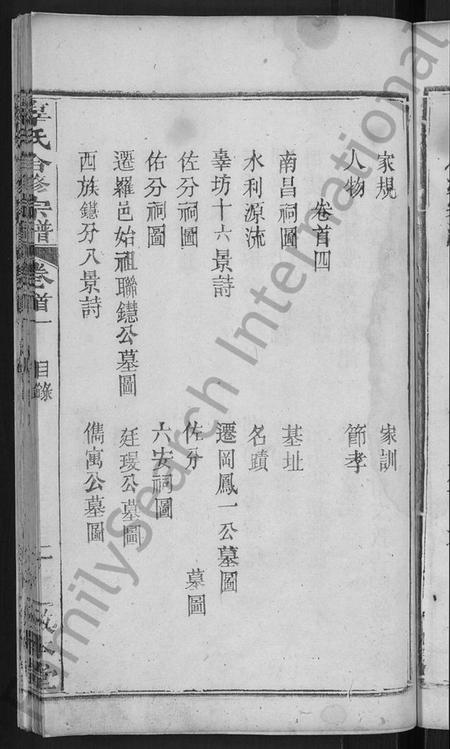 家規 家訓
人物 節孝
卷首四
南昌祠圖 基址
水利源流 名蹟
辜坊十六景詩 遷岡鳳一公墓圖
佐分祠圖 佐分 墓圖
佑分祠圖 六安祠圖
遷羅邑始祖聯鑣公墓圖 廷瑗公墓圖
西族鑣分八景詩 儁寓公墓圖
辜氏合修宗譜 卷首一 目錄
FamilySearch International